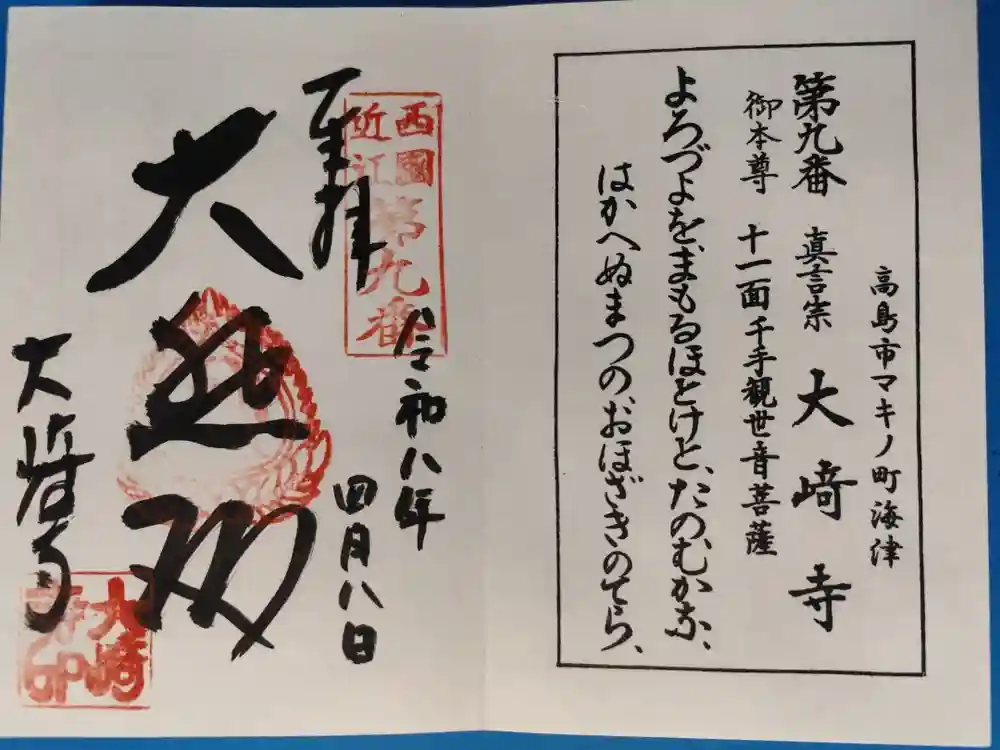 高島市マキノ町海津
第九番　真言宗　大﨑寺
御本尊　十一面千手観世音菩薩
よろづよを、まもるほとけと、たのむかな、
はかへぬまつの、おほざきのてら、
奉拝
西國
近江
第九番
令和八年
四月八日
大悲閣
大﨑寺
大﨑
寺印